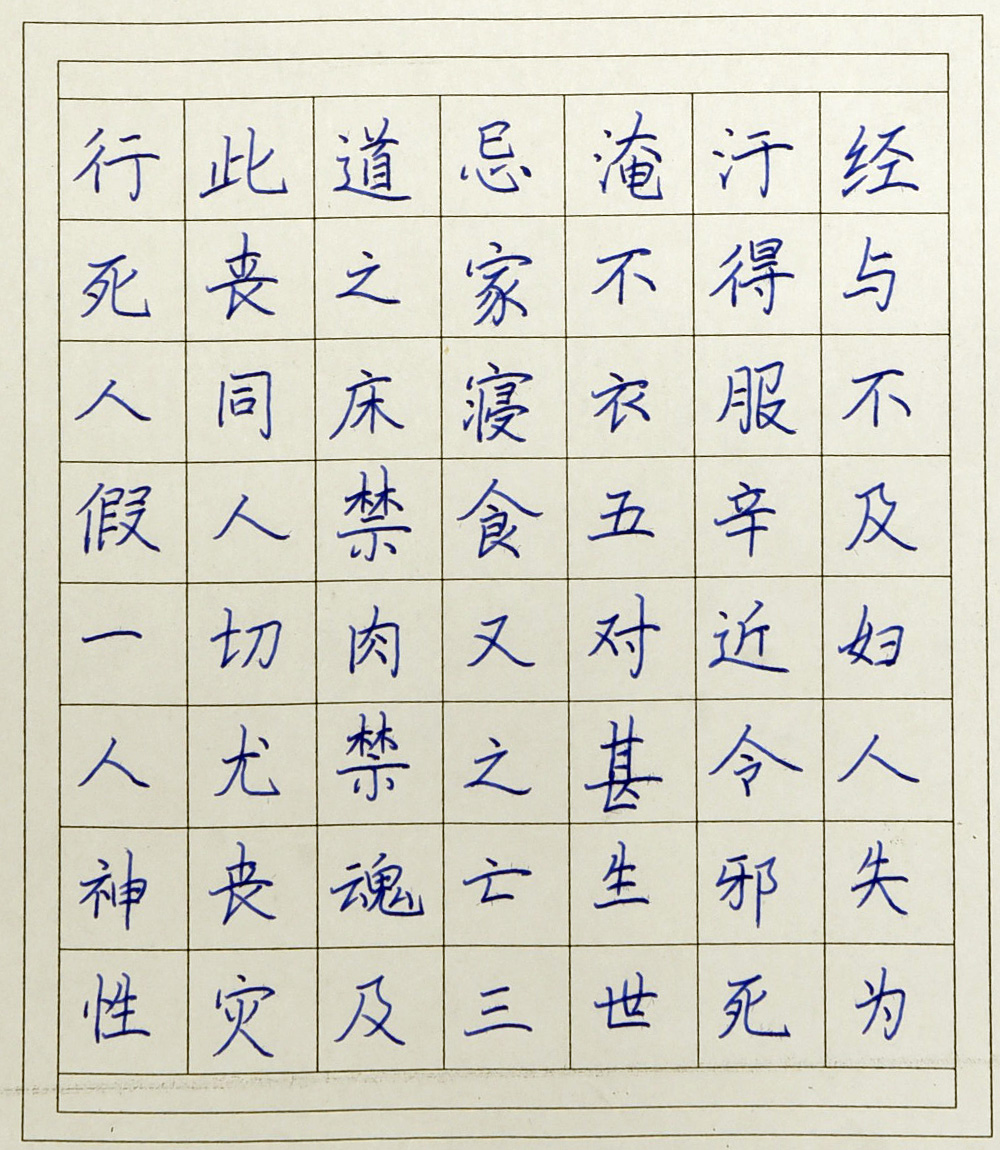 行此道忌淹汙经
死丧之家不得与
人同床寝衣服不
假人禁食五辛及
一切肉又对近妇
人尤禁之甚令人
神丧魂亡生邪失
性灾及三世死为